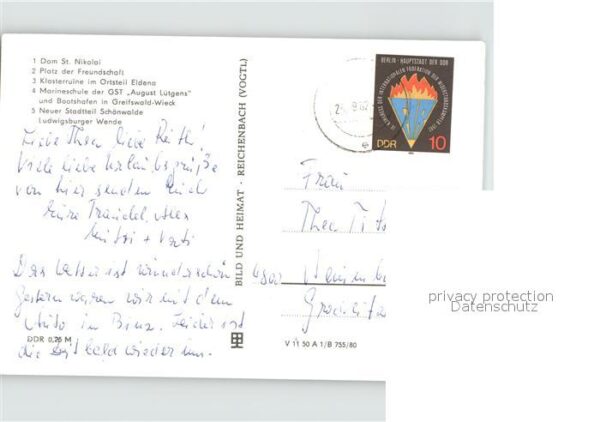 1 Dom St. Nikolai
2 Platz der Freundschaft
3 Klosterruine im Ortsteil Eldena
4 Marineschule der GST „August Lütgens"
und Bootshafen in Greifswald-Wieck
5 Neuer Stadtteil Schönwalde
Ludwigsburger Wende
Liebe Thea, liebe
Viele liebe Urlaubsgrüße
von hier senden Euch
Eure Traudel, Alex
+
Das Wetter ist wunderschön
Gestern waren wir mit dem
Auto in Binz. Leider ist
die Zeit bald wieder um.
DDR 0,25 M
BILD UND HEIMAT · REICHENBACH (VOGTL)
BERLIN · HAUPTSTADT DER DDR
DDR 10
Frau
Thea
V 11 50 A 1/B 755/80
privacy protection
Datenschutz